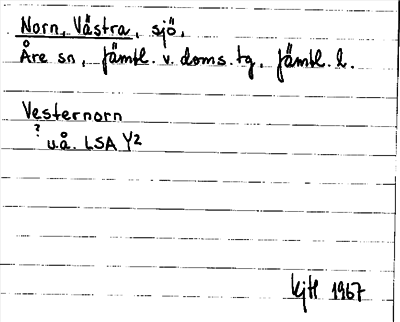 Norn, Västra, sjö,
Åre sn, Jämtl. v. doms. tg, Jämtl. l.
Vesternorn
? u.å. LSA Y2
KjH 1967